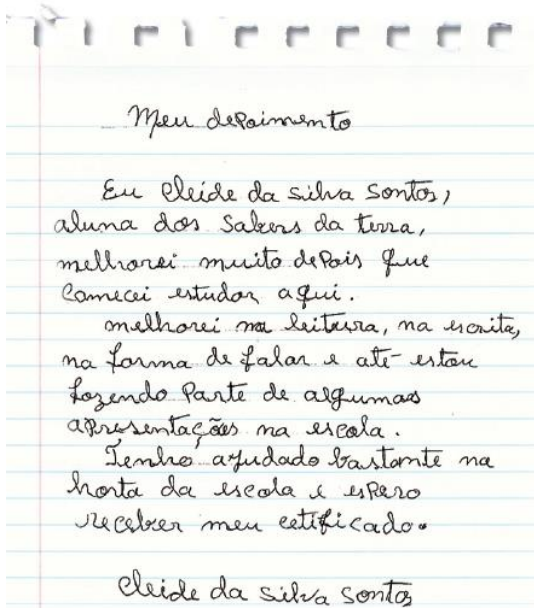 Meu depoimento
Eu Cleide da silva Santos,
aluna dos Sabers da terra,
melhorei muito depois que
Comecei estudar aqui.
melhorei na leitura, na escrita,
na forma de falar e até estou
fazendo Parte de algumas
apresentações na escola.
Tenho ajudado bastante na
horta da escola e espero
receber meu cetificado.
Cleide da silva Santos